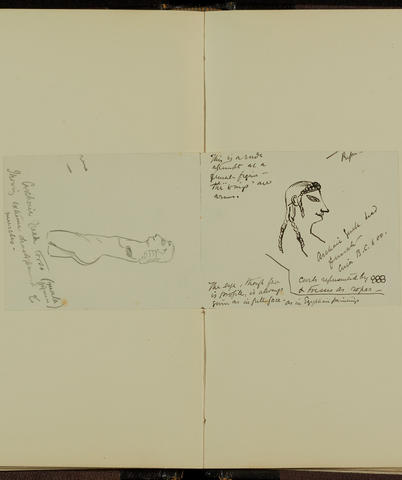 Archaic Greek Torso (male figure)
Showing extreme development of
muscles —
This is a rude
attempt at a
female figure —
The "wings" are
arms.
Archaic Greek head
female —
Circa B.C. 600.
curls represented by
& tresses as ropes —
The eye, though face
is profile, is always
given as in fullface as in Egyptian paintings